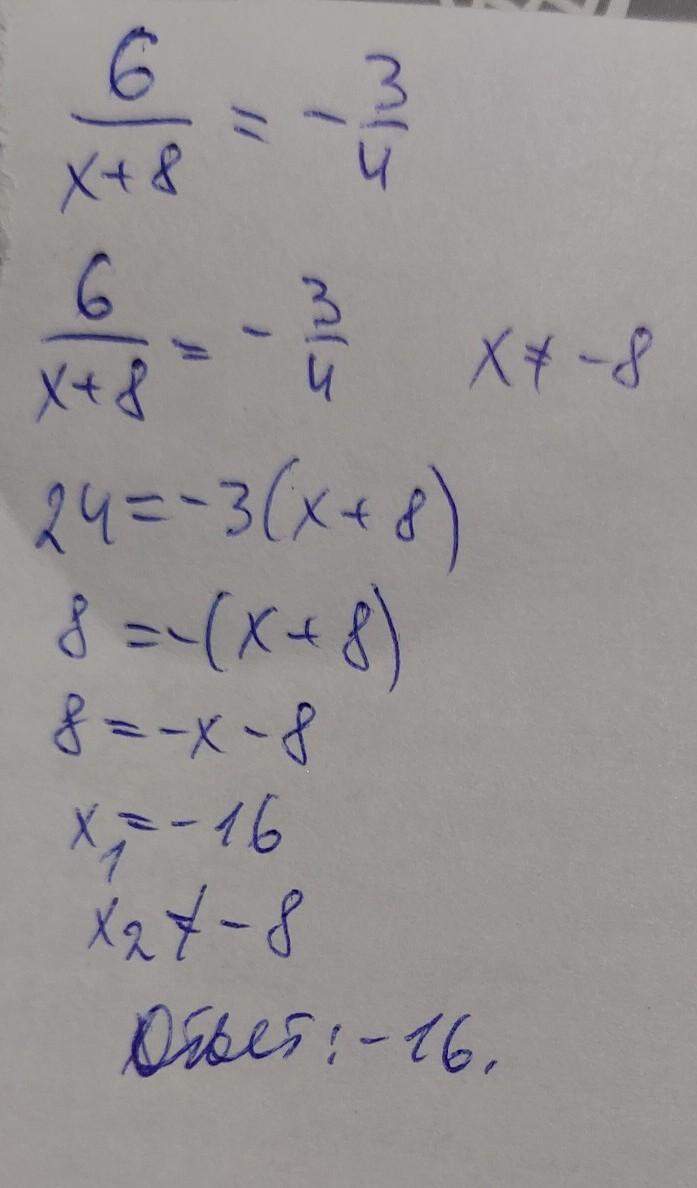 6/(x+8) = -3/4
6/(x+8) = -3/4 x ≠ -8
24=-3(x+8)
8=-(x+8)
8=-x-8
x₁=-16
x₂≠-8
Ответ: -16.